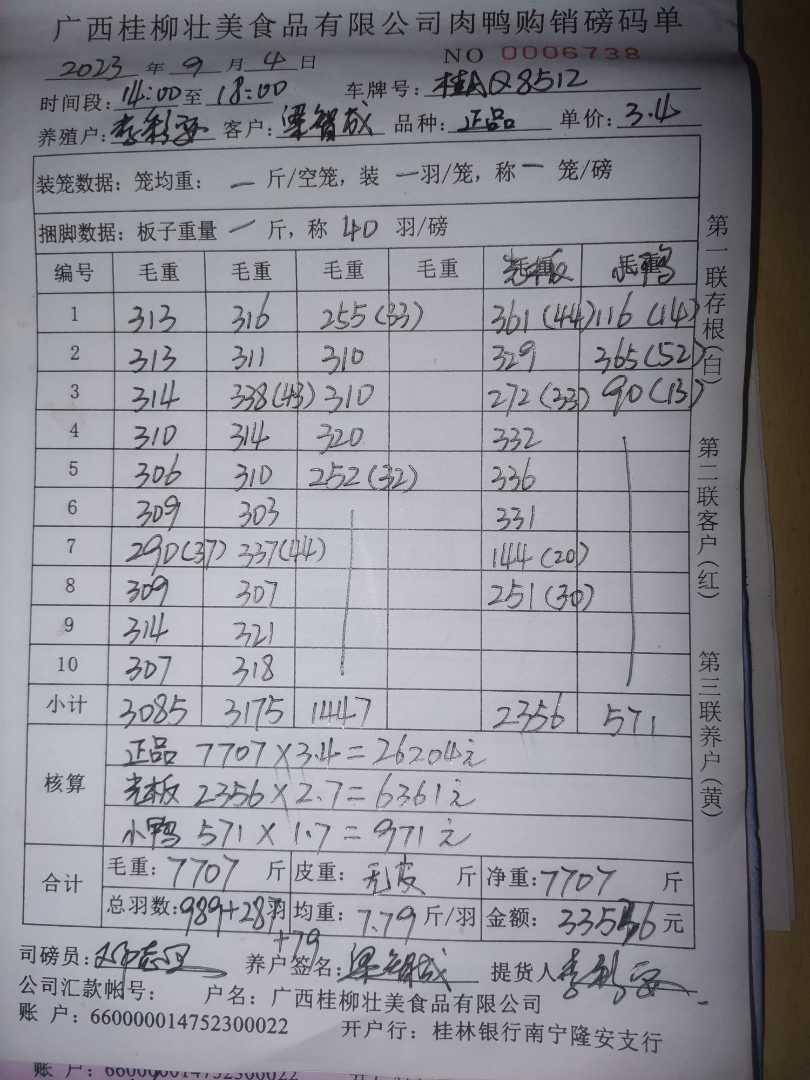 广西桂柳壮美食品有限公司肉鸭购销磅码单
NO 0006738
2023 年 9 月 4 日
时间段:14:00至 18:00 车牌号:桂AQ8512
养殖户: 客户:梁智成 品种:正品 单价:3.4
装笼数据:笼均重: 一 斤/空笼,装 一羽/笼,称一 笼/磅
捆脚数据:板子重量 一 斤,称 40 羽/磅
编号 毛重 毛重 毛重 毛重 光板 小鸭
1 313 316 255(33) 361(44) 116(14)
2 313 311 310 329 365(52)
3 314 338(43) 310 272(33) 90(13)
4 310 314 320 332
5 306 310 252(32) 336
6 309 303 331
7 290(37) 337(44) 144(20)
8 309 307 251(30)
9 314 321
10 307 318
小计 3085 3175 1447 2356 571
核算
正品 7707×3.4=26204元
光板 2356×2.7=6361元
小鸭 571×1.7=971元
合计
毛重:7707 斤 皮重:无皮 斤 净重:7707 斤
总羽数:989+287羽 均重:7.79斤/羽 金额:33536元
+79
司磅员: 养户签名:梁智成 提货人
公司汇款帐号: 户名:广西桂柳壮美食品有限公司
账 户:660000014752300022 开户行:桂林银行南宁隆安支行
第一联存根(白)
第二联客户(红)
第三联养户(黄)
账 户:660000014752300022